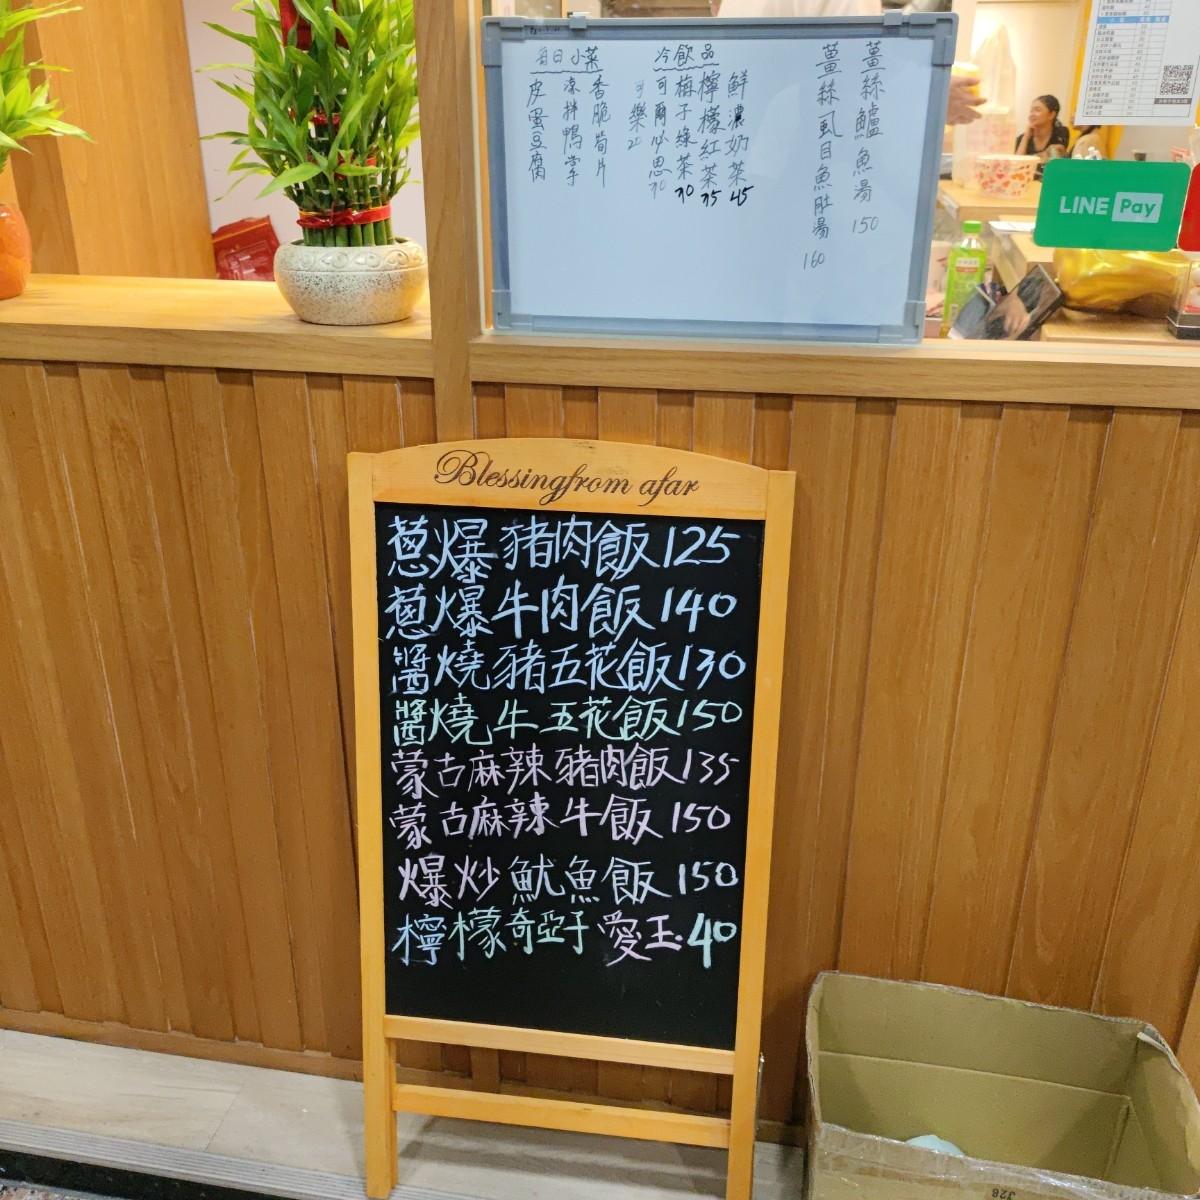 薑絲鱸魚湯 150
薑絲虱目魚肚湯 160
冷飲品
鮮濃奶茶 45
檸檬紅茶 35
梅子綠茶 30
可爾必思 30
可樂 20
每日小菜
香脆筍片
涼拌鴨掌
皮蛋豆腐
LINE Pay
Blessingfrom afar
蔥爆豬肉飯125
蔥爆牛肉飯140
醬燒豬五花飯130
醬燒牛五花飯150
蒙古麻辣豬肉飯135
蒙古麻辣牛飯150
爆炒魷魚飯150
檸檬奇亞子愛玉.40
328